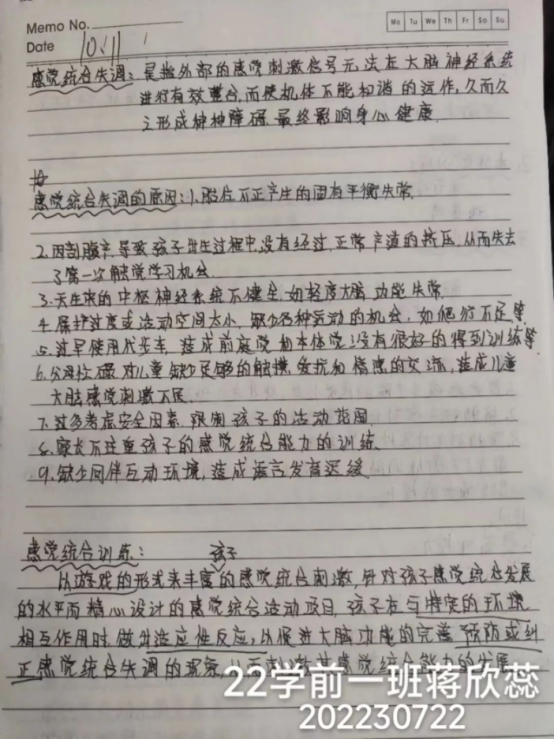 Memo No.
Mo Tu We Th Fr Sa Su
Date 10.11
感觉统合失调：是指外部的感觉刺激信号无法在大脑神经系统
进行有效整合，而使机体不能和谐的运作，久而久
之形成精神障碍，最终影响身心健康.
感觉统合失调的原因：1.胎位不正产生的固有平衡失常
2.因剖腹产，导致孩子出生过程中，没有经过正常产道的挤压，从而失去
了第一次触觉学习机会
3.天生来的中枢神经系统不健全，如轻度大脑功能失常
4.保护过度或活动空间太小，缺少各种运动的机会，如爬行不足等
5.过早使用代步车，造成前庭觉和本体觉没有很好的得到训练等
6.父母忙碌，对儿童缺少足够的触摸、爱抚和情感的交流，造成儿童
大脑感觉刺激不足
7.过多考虑安全因素，限制孩子的活动范围
8.家长不注重孩子的感觉统合能力的训练
9.缺少同伴互动环境，造成语言发育迟缓
感觉统合训练：
孩子
以游戏的形式来丰富的感觉统合刺激，针对孩子感觉统合发展
的水平而精心设计的感觉统合活动项目，孩子在与特定的环境
相互作用时，做出适应性反应，以促进大脑功能的完善，预防或纠
正感觉统合失调的现象，从而刺激其感觉统合能力的发展
22学前一班蒋欣蕊
202230722